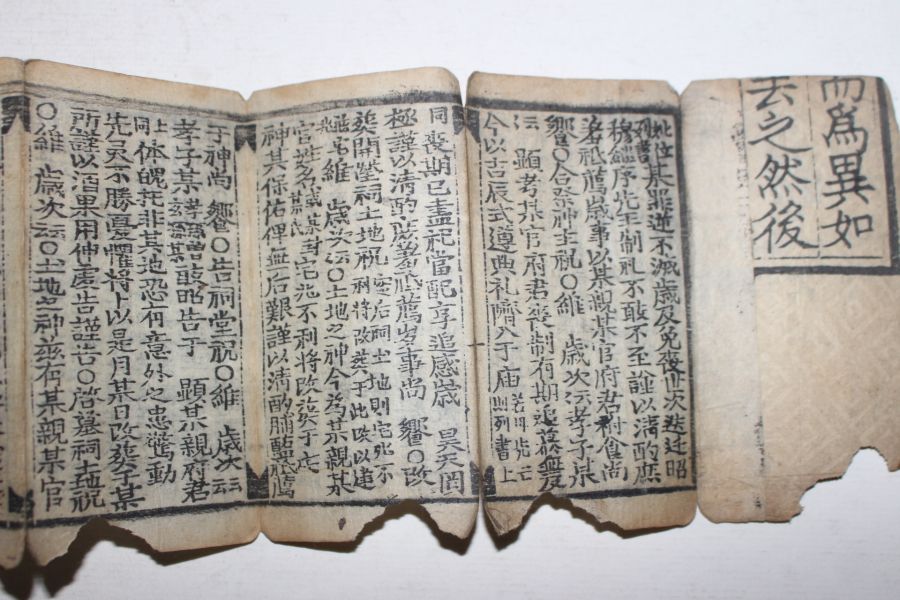 而爲異如
去之然後
妣位某罪逆不滅歲及免喪世次迭迁昭
穆継序先王制礼不敢不至謹以清酌庶
羞祗薦歲事以某親某官府君祔食尚
饗○合祭神主祝○維 歲次云孝子某
云 顯考某官府君喪制有期追慕無及
今以古辰式遵典礼隮入于庙 則列書上
同喪期已盡礼當配享追感歲 昊天罔
極謹以清酌庶羞祗薦歲事尚 饗○改
葬開塋祠土地祝
維 歲次云○土地之神今為某親某
官姓名 宅兆不利將改葬于此
神其保佑俾無后艱謹以清酌脯醢祗薦
于神尚 饗○告祠堂祝○維 歲次云
孝子某 敢昭告于 顯某親府君
上同 体魄托非其地恐有意外之患驚動
先灵不勝憂懼將卜以是月某日改葬于某
所謹以酒果用伸虔告謹告○啓墓祠土地祝
○維 歲次云○土地之神茲有某親某官